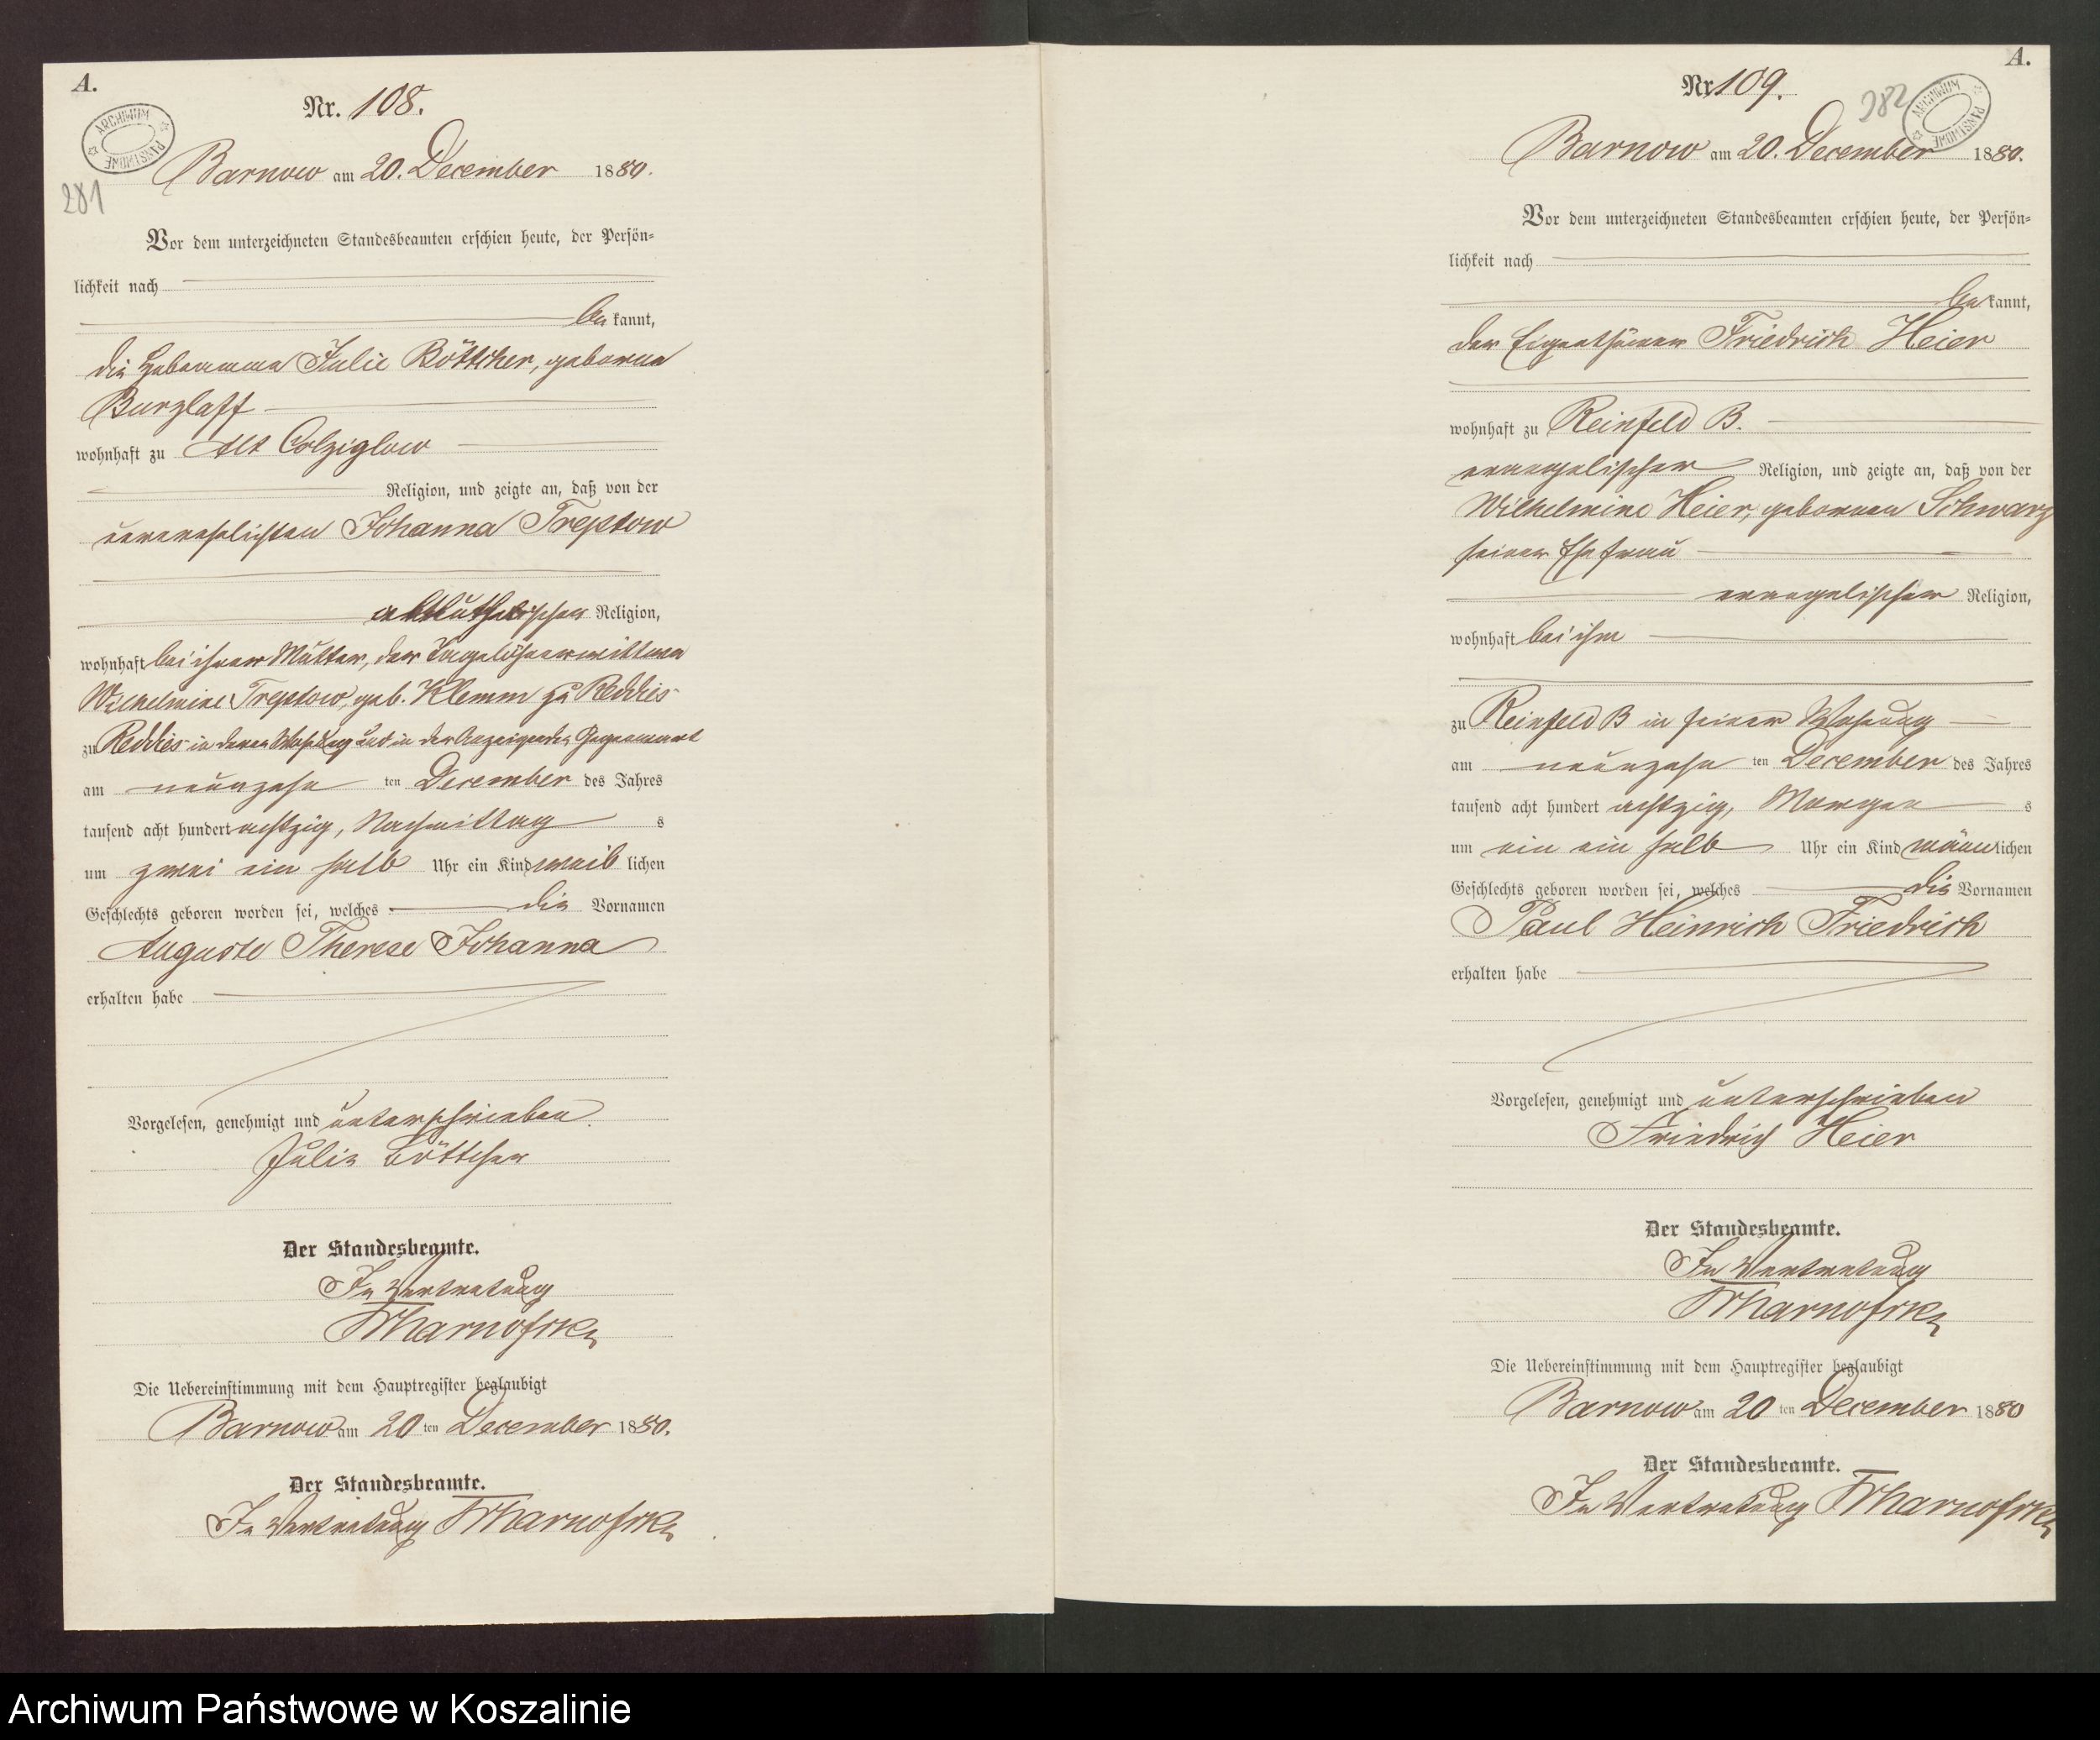 A.
Nr. 108.
ARCHIWUM PAŃSTWOWE
281
Barnow am 20. December 1880.
Vor dem unterzeichneten Standesbeamten erschien heute, der Persön-
lichkeit nach
be kannt,
die Hebamme Julie Böttcher, geborne
Burzlaff
wohnhaft zu Alt Colziglow
Religion, und zeigte an, daß von der
unverehelichten Johanna Treptow
altlutherischer Religion,
wohnhaft bei ihrer Mutter, der Tagelöhnerwittwe
Wilhelmine Treptow, geb. Klemm zu Reddies
zu Reddies in deren Wohnung und in der Anzeigenden Gegenwart
am neunzehn ten December des Jahres
tausend acht hundert achtzig, Nachmittag s
um zwei ein halb Uhr ein Kind weib lichen
Geschlechts geboren worden sei, welches die Vornamen
Auguste Therese Johanna
erhalten habe
Vorgelesen, genehmigt und unterschrieben.
Julie Böttcher
Der Standesbeamte.
In Vertretung
Die Uebereinstimmung mit dem Hauptregister beglaubigt
Barnow am 20 ten December 1880.
Der Standesbeamte.
In Vertretung
A.
Nr. 109.
282
ARCHIWUM PAŃSTWOWE
Barnow am 20. December 1880.
Vor dem unterzeichneten Standesbeamten erschien heute, der Persön-
lichkeit nach
be kannt,
der Eigenthümer Friedrich Heier
wohnhaft zu Reinfeld B.
evangelischer Religion, und zeigte an, daß von der
Wilhelmine Heier, gebornen Schwarz
seiner Ehefrau
evangelischer Religion,
wohnhaft bei ihm
zu Reinfeld B in seiner Wohnung
am neunzehn ten December des Jahres
tausend acht hundert achtzig, Morgen s
um ein ein halb Uhr ein Kind männ lichen
Geschlechts geboren worden sei, welches die Vornamen
Paul Heinrich Friedrich
erhalten habe
Vorgelesen, genehmigt und unterschrieben
Friedrich Heier
Der Standesbeamte.
In Vertretung
Die Uebereinstimmung mit dem Hauptregister beglaubigt
Barnow am 20 ten December 1880
Der Standesbeamte.
In Vertretung
Archiwum Państwowe w Koszalinie